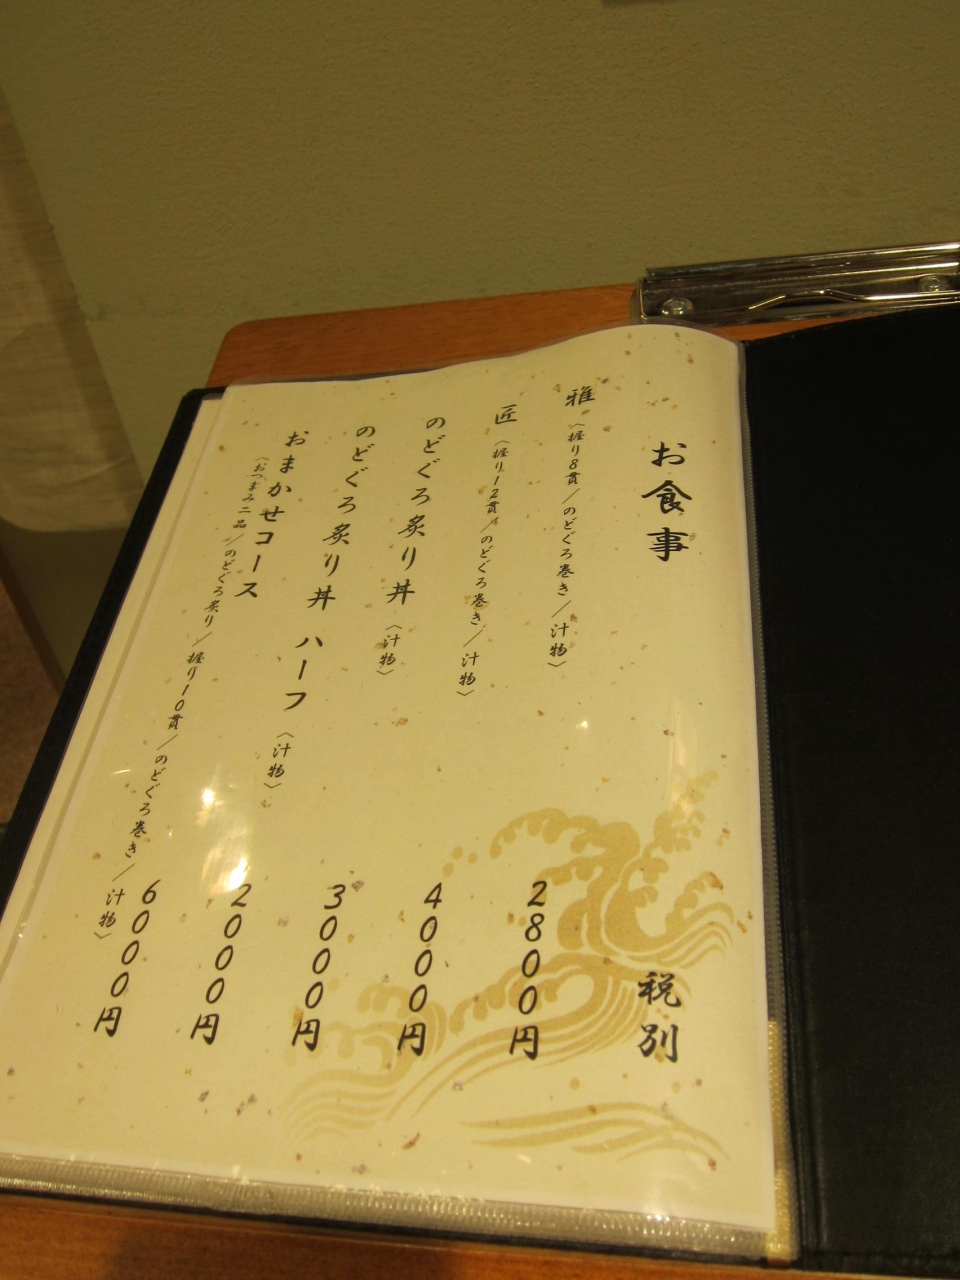 お食事 税別
雅〈握り8貫/のどぐろ巻き/汁物〉 2800円
匠〈握り12貫/のどぐろ巻き/汁物〉 4000円
のどぐろ炙り丼〈汁物〉 3000円
のどぐろ炙り丼 ハーフ〈汁物〉 2000円
おまかせコース 6000円
〈おつまみ二品/のどぐろ炙り/握り10貫/のどぐろ巻き/汁物〉